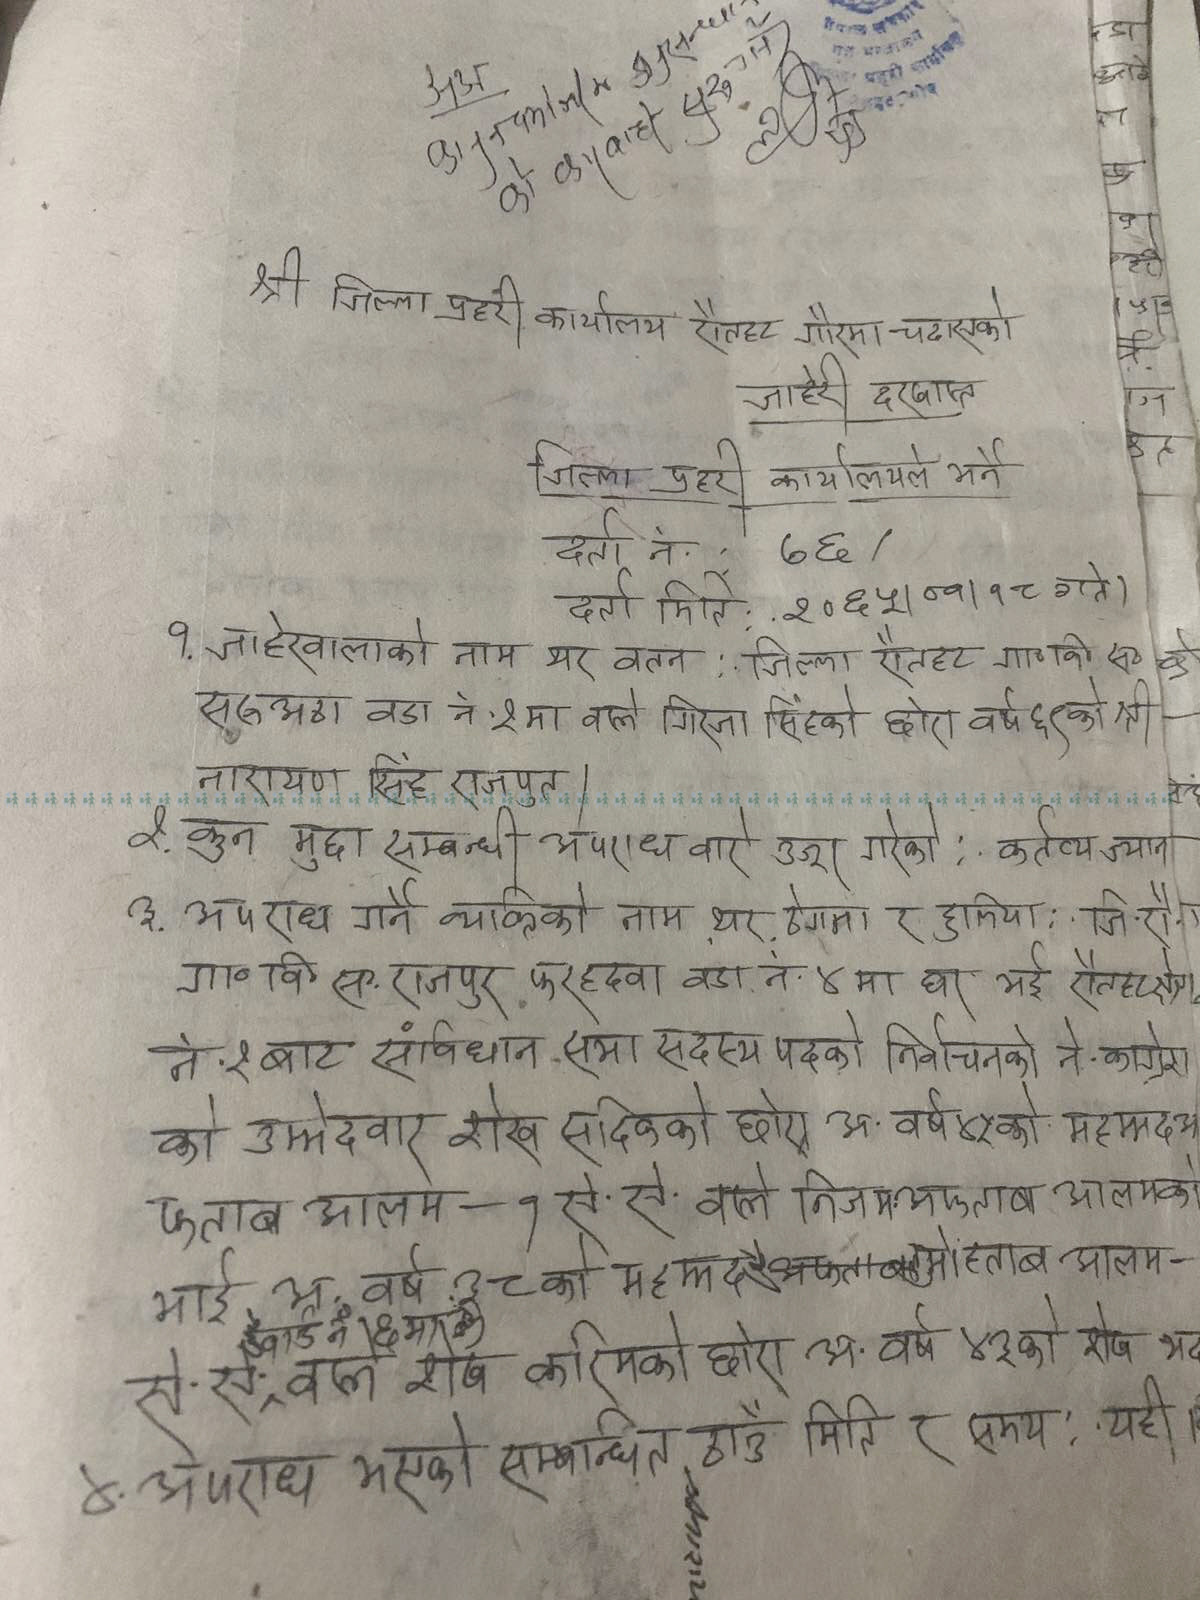 कानुन बमोजिम अनुसन्धान
को कारवाही शुरु गर्ने
श्री जिल्ला प्रहरी कार्यालय रौतहट गौरमा चढाएको
जाहेरी दरखास्त
जिल्ला प्रहरी कार्यालयले भर्ने
दर्ता नं. : ७६/
दर्ता मिति: २०६५।०१।१८ गते।
१. जाहेरवालाको नाम थर वतन : जिल्ला रौतहट गा॰वि॰स॰
सरुअठा वडा नं. २मा बस्ने गिरजा सिंहको छोरा वर्ष ६९को श्री
नारायण सिंह राजपुत।
२. कुन मुद्दा सम्बन्धी अपराध वारे उजुर गरेको : कर्तव्य ज्यान
३. अपराध गर्ने व्यक्तिको नाम थर ठेगाना र हुलिया : जि.रौ.
गा॰वि.स. राजपुर फरहदवा वडा नं. ४मा घर भई रौतहट क्षेत्र
नं. २ बाट संविधान सभा सदस्य पदको निर्वाचनको ने. कांग्रेस
को उम्मेदवार शेख सदिकको छोरा अ. वर्ष ४५को महम्मद अ
फताब आलम – १ से. से. बस्ने निज म. अफताब आलमको
भाई अ. वर्ष ३८को महम्मद मोहताब आलम –
वार्ड नं १६मा
से. से. बस्ने शेष करिमको छोरा अ. वर्ष ४३को शेष भद
४. अपराध भएको सम्बन्धित ठाउँ मिति र समय : यही